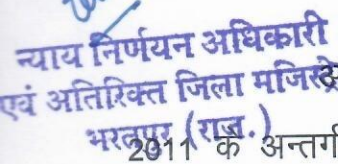 न्याय निर्णयन अधिकारी
एवं अतिरिक्त जिला मजिस्ट्रे
भरतपुर (राज.)
2011 के अन्तर्ग